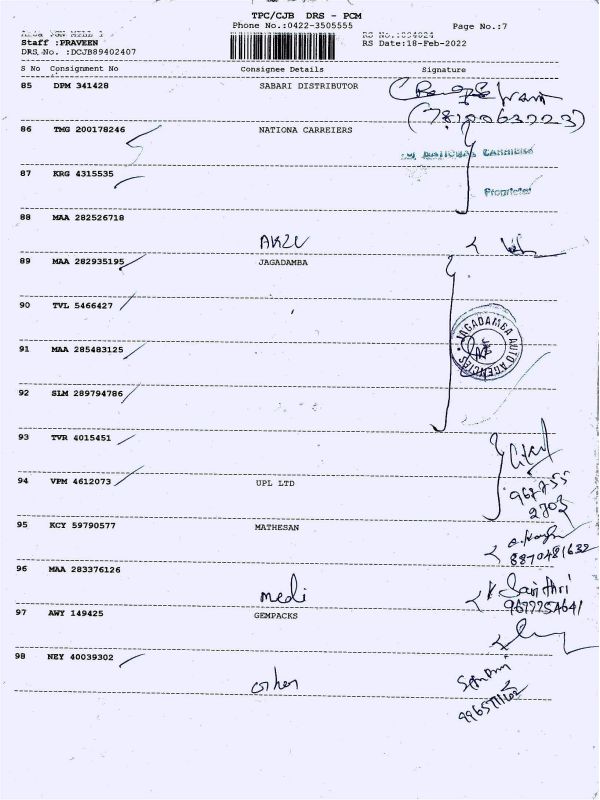 TPC/CJB DRS - PCM
Phone No.:0422-3505555 Page No.:7
Staff :PRAVEEN
DRS No. :DCJB89402407 RS Date:18-Feb-2022
S No Consignment No Consignee Details Signature
85 DPM 341428 SABARI DISTRIBUTOR
(7810063723)
86 TMG 200178246 NATIONA CARREIERS
NATIONAL CARRIERS
87 KRG 4315535
Proprietor
88 MAA 282526718
89 MAA 282935195 JAGADAMBA
90 TVL 5466427
JAGADAMBA AUTO AGENCIES
91 MAA 285483125
92 SLM 289794786
93 TVR 4015451
94 VPM 4612073 UPL LTD
95 KCY 59790577 MATHESAN
8870481632
96 MAA 283376126
medi
97 AWY 149425 GEMPACKS
98 NEY 40039302